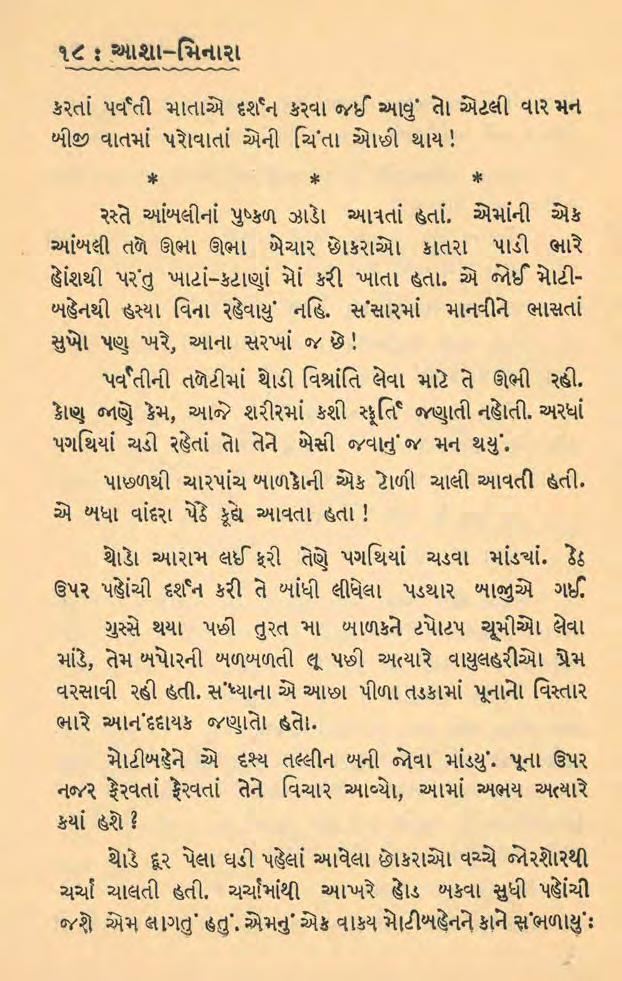 ૧૮ : આશા-મિનારા
કરતાં પર્વતી માતાએ દર્શન કરવા જઈ આવું તો એટલી વાર મન
બીજી વાતમાં પરોવાતાં એની ચિંતા ઓછી થાય !
* * *
રસ્તે આંબલીનાં પુષ્કળ ઝાડો આવતાં હતાં. એમાંની એક
આંબલી તળે ઊભા ઊભા બેચાર છોકરાઓ કાતરા પાડી ભારે
હોંશથી પરંતુ ખાટાં-કટાણાં મોં કરી ખાતા હતા. એ જોઈ મોટી-
બહેનથી હસ્યા વિના રહેવાયું નહિ. સંસારમાં માનવીને ભાસતાં
સુખો પણ ખરે, આના સરખાં જ છે !
પર્વતીની તળેટીમાં થોડી વિશ્રાંતિ લેવા માટે તે ઊભી રહી.
કોણ જાણે કેમ, આજે શરીરમાં કશી સ્ફૂર્તિ જણાતી નહોતી. અરધાં
પગથિયાં ચડી રહેતાં તો તેને બેસી જવાનું જ મન થયું.
પાછળથી ચારપાંચ બાળકોની એક ટોળી ચાલી આવતી હતી.
એ બધા વાંદરા પેઠે કૂદ્યે આવતા હતા !
થોડો આરામ લઈ ફરી તેણે પગથિયાં ચડવા માંડ્યાં. ઠેઠ
ઉપર પહોંચી દર્શન કરી તે બાંધી લીધેલા પડથાર બાજુએ ગઈ.
ગુસ્સે થયા પછી તુરત મા બાળકને ટપોટપ ચૂમીઓ લેવા
માંડે, તેમ બપોરની બળબળતી લૂ પછી અત્યારે વાયુલહરીઓ પ્રેમ
વરસાવી રહી હતી. સંધ્યાના એ આછા પીળા તડકામાં પૂનાનો વિસ્તાર
ભારે આનંદદાયક જણાતો હતો.
મોટીબહેને એ દૃશ્ય તલ્લીન બની જોવા માંડયું. પૂના ઉપર
નજર ફેરવતાં ફેરવતાં તેને વિચાર આવ્યો, આમાં અભય અત્યારે
કયાં હશે ?
થોડે દૂર પેલા ઘડી પહેલાં આવેલા છોકરાઓ વચ્ચે જોરશોરથી
ચર્ચા ચાલતી હતી. ચર્ચામાંથી આખરે હોડ બકવા સુધી પહોંચી
જશે એમ લાગતું હતું. એમનું એક વાકય મોટીબહેનને કાને સંભળાયું :